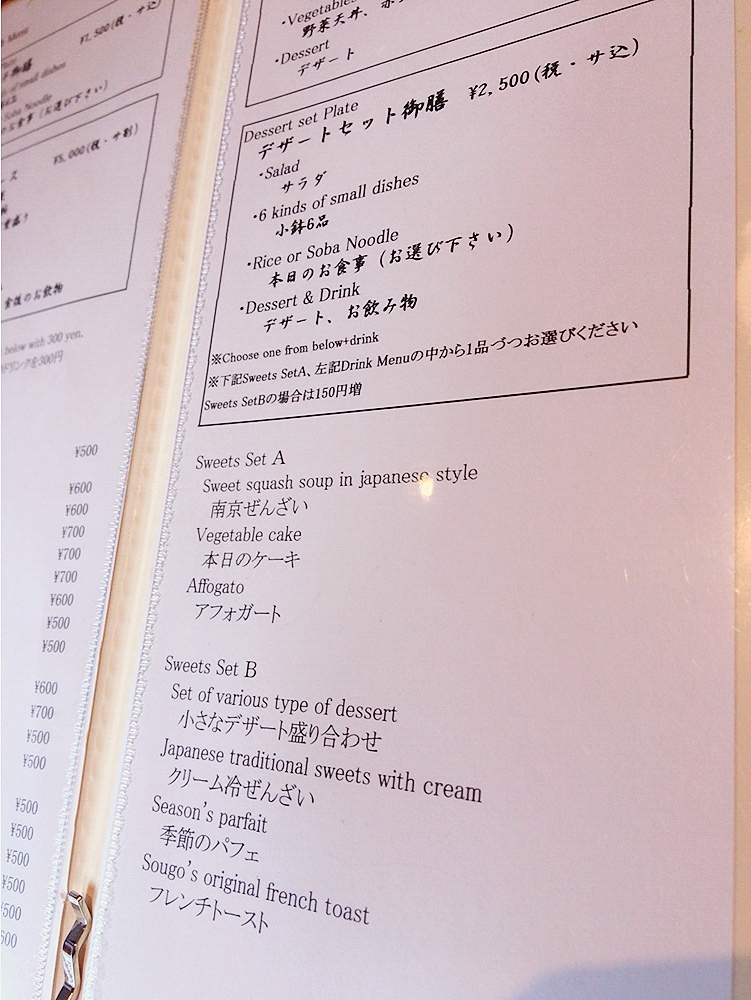 ¥1,500(税・サ込)
of small dishes
Soba Noodle
お食事 (お選び下さい)
¥5,000(税・サ別)
食後のお飲物
below with 300 yen.
ドリンクを300円
¥500
¥600
¥600
¥700
¥700
¥700
¥600
¥500
¥500
¥600
¥700
¥500
¥500
¥500
¥500
¥500
¥500
¥500
・Vegetables
野菜天丼、
・Dessert
デザート
Dessert set Plate
デザートセット御膳 ¥2,500(税・サ込)
・Salad
サラダ
・6 kinds of small dishes
小鉢6品
・Rice or Soba Noodle
本日のお食事 (お選び下さい)
・Dessert & Drink
デザート、お飲み物
※Choose one from below+drink
※下記Sweets SetA、左記Drink Menuの中から1品づつお選びください
Sweets SetBの場合は150円増
Sweets Set A
Sweet squash soup in japanese style
南京ぜんざい
Vegetable cake
本日のケーキ
Affogato
アフォガート
Sweets Set B
Set of various type of dessert
小さなデザート盛り合わせ
Japanese traditional sweets with cream
クリーム冷ぜんざい
Season's parfait
季節のパフェ
Sougo's original french toast
フレンチトースト